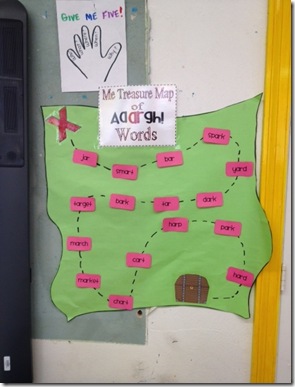 GIVE ME FIVE!
Me Treasure Map
of
Aaarghl
Words
spark
jar
smart
bar
yard
target
bark
dark
harp
park
march
cart
market
hard
chart